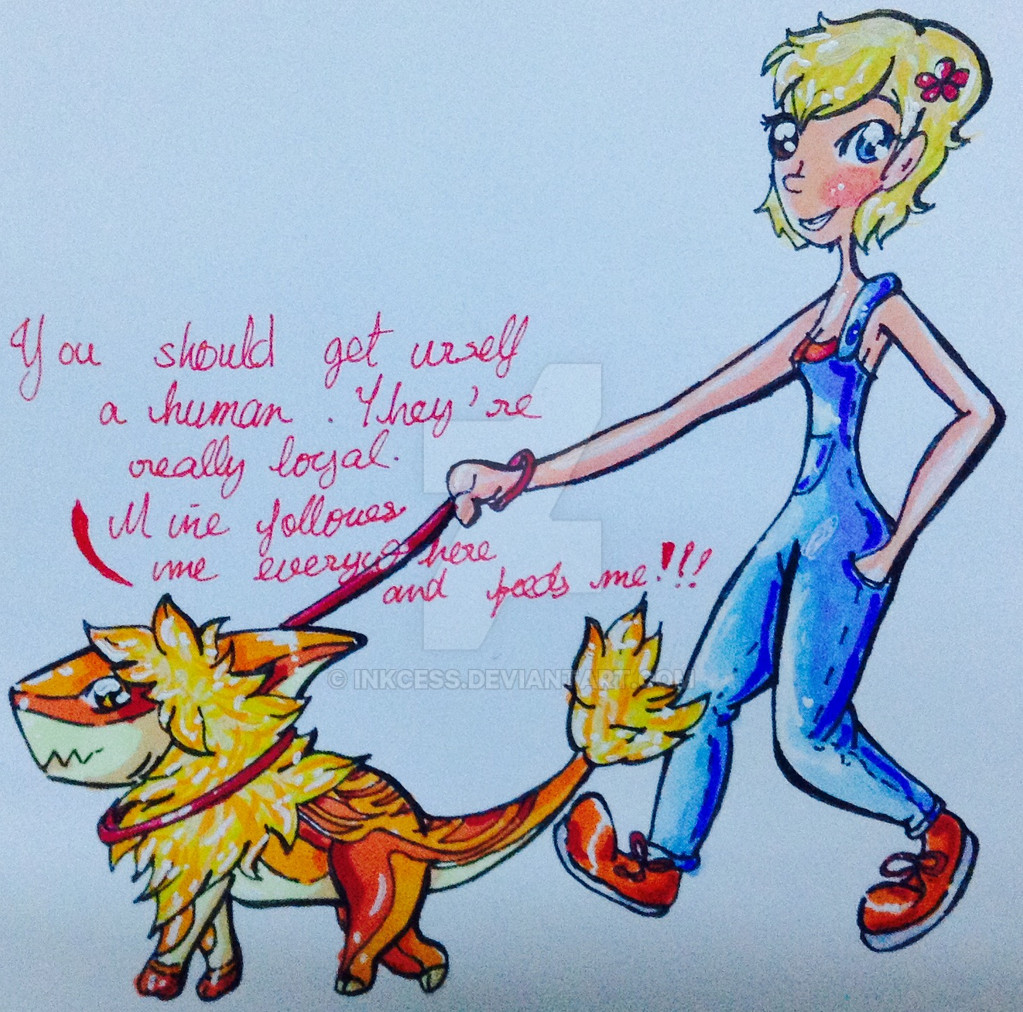 You should get urself
a human. They're
really loyal.
Mine follows
me everywhere
and feeds me!!!
© INKCESS.DEVIANTART.COM